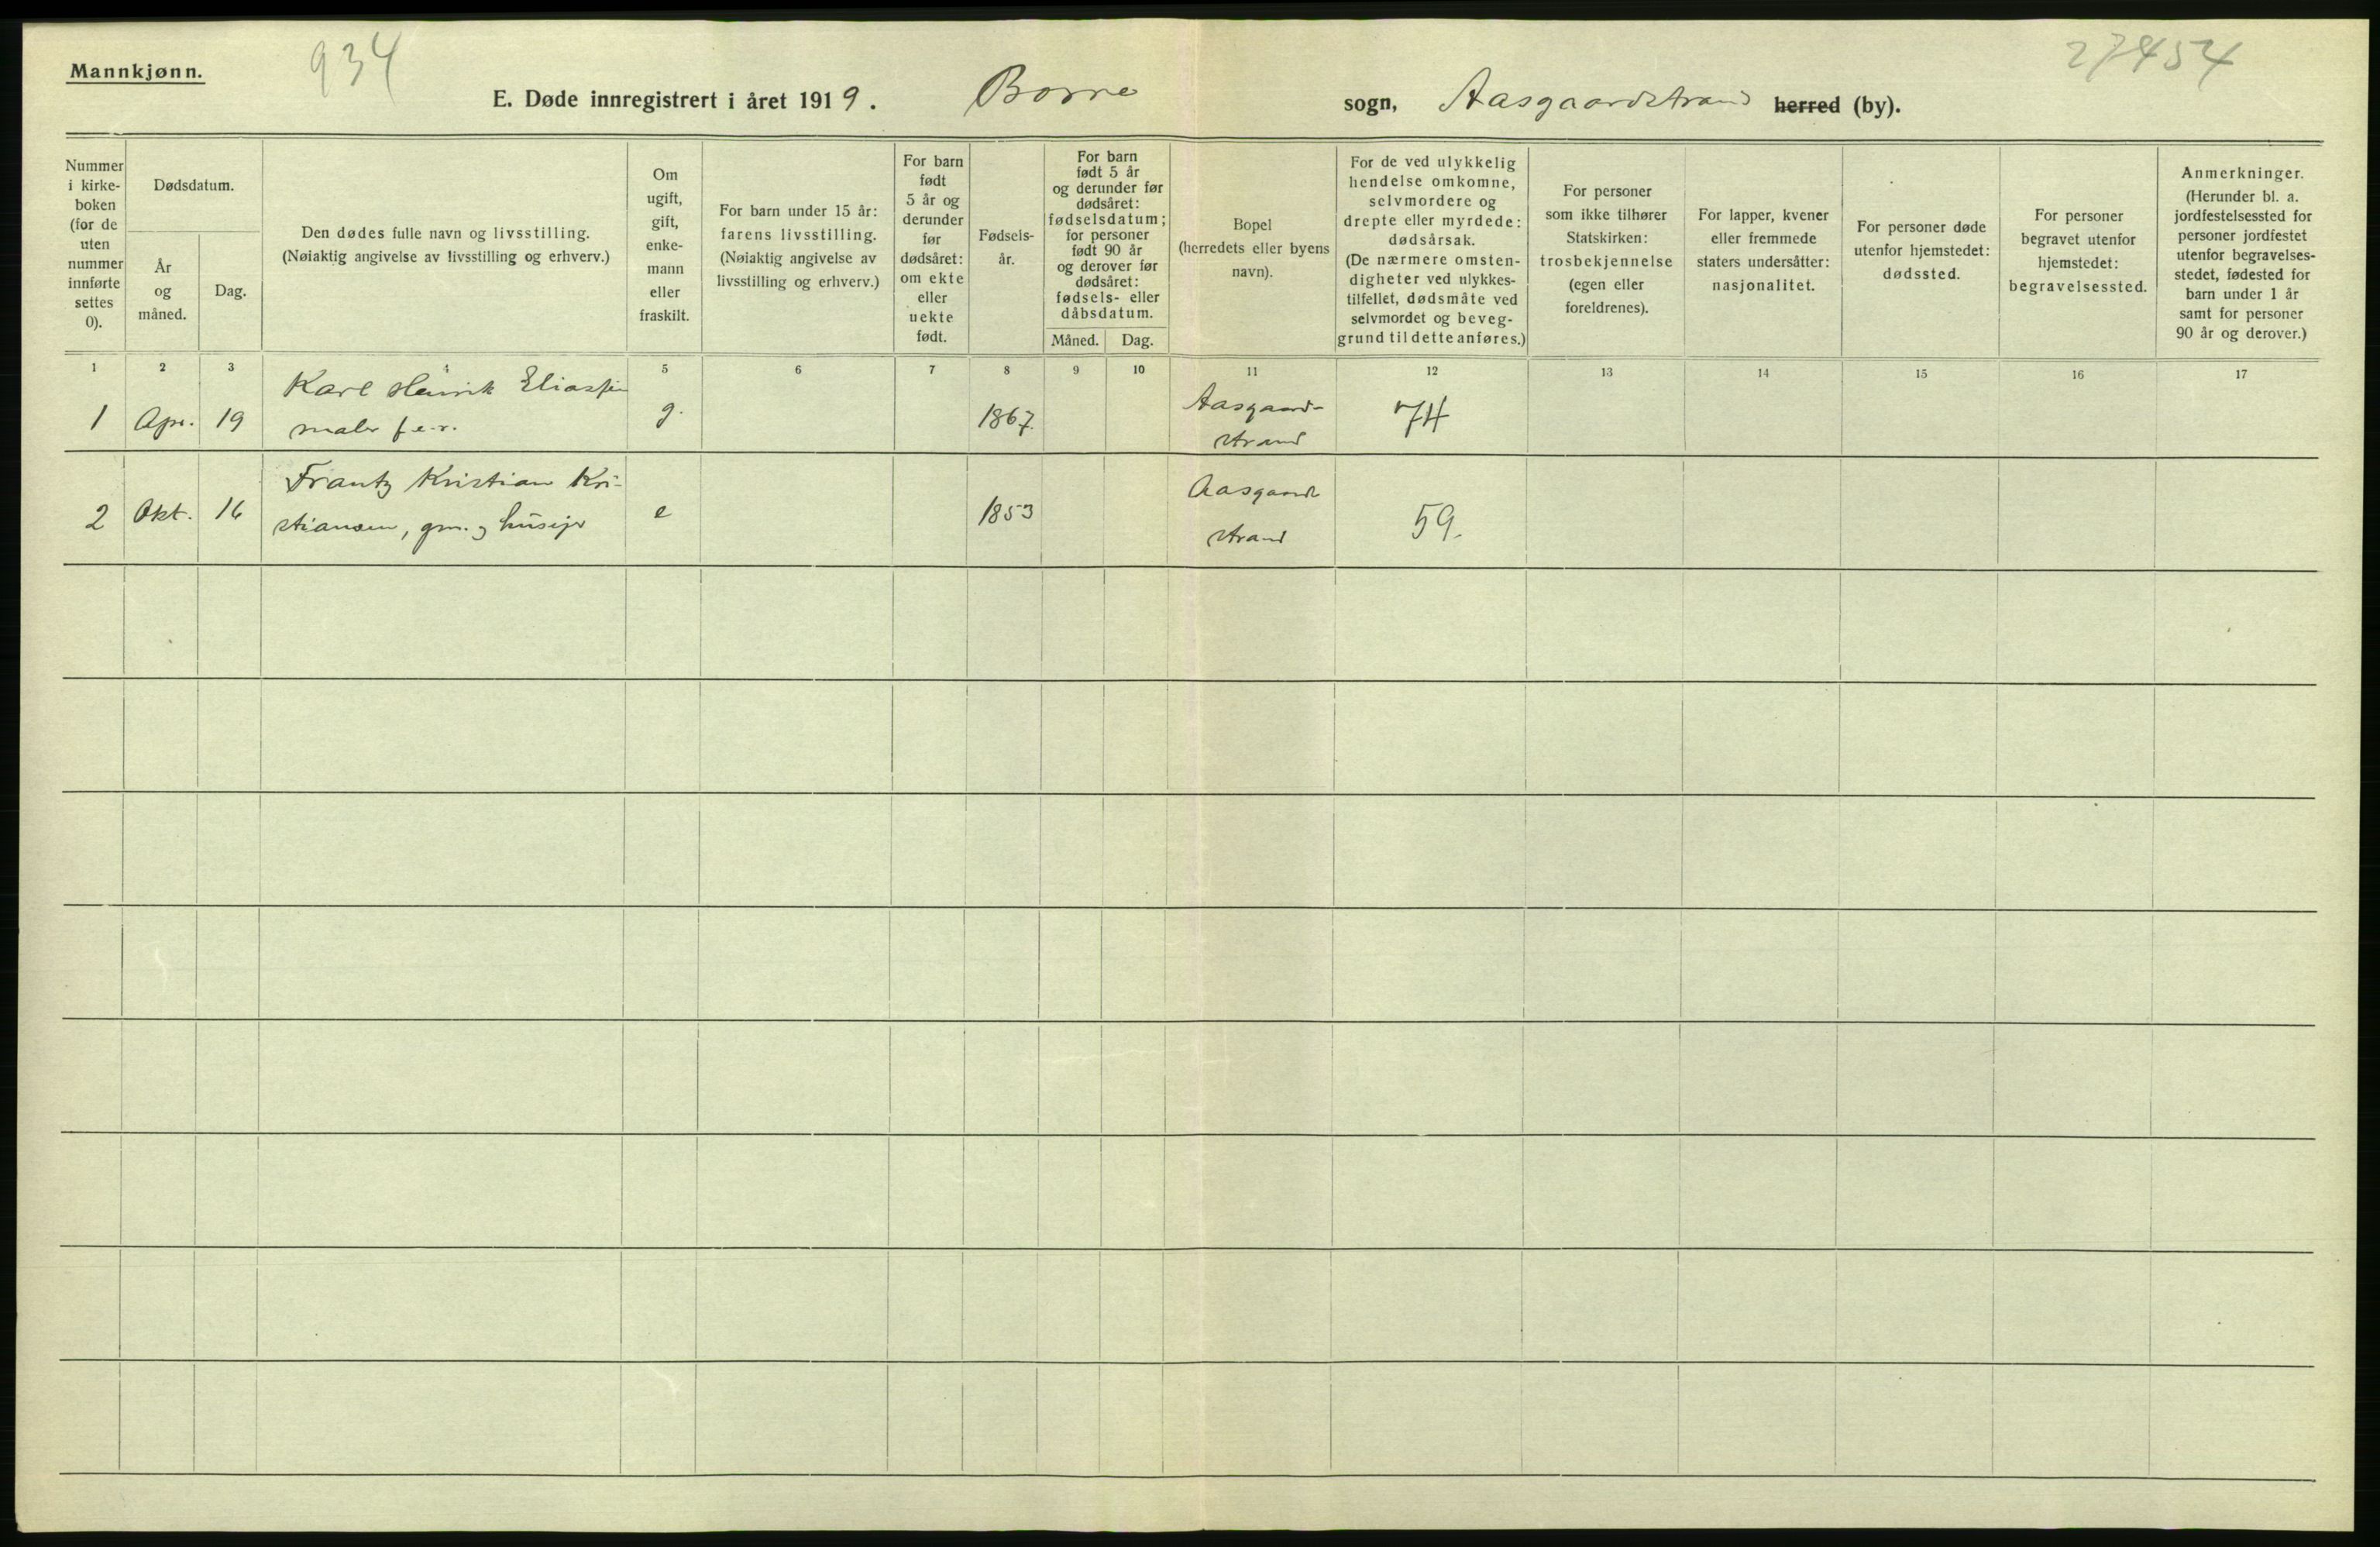 Mannkjønn.
934
27454
E. Døde innregistrert i året 1919. Borre sogn, Aasgaardstrand herred (by).
Nummer
i kirke-
boken
(for de
uten
nummer
innførte
settes
0).
Dødsdatum.
År
og
måned.
Dag.
Den dødes fulle navn og livsstilling.
(Nøiaktig angivelse av livsstilling og erhverv.)
Om
ugift,
gift,
enke-
mann
eller
fraskilt.
For barn under 15 år:
farens livsstilling.
(Nøiaktig angivelse av
livsstilling og erhverv.)
For barn
født
5 år og
derunder
før
dødsåret:
om ekte
eller
uekte
født.
Fødsels-
år.
For barn
født 5 år
og derunder før
dødsåret:
fødselsdatum;
for personer
født 90 år
og derover før
dødsåret:
fødsels- eller
dåbsdatum.
Måned.
Dag.
Bopel
(herredets eller byens
navn).
For de ved ulykkelig
hendelse omkomne,
selvmordere og
drepte eller myrdede:
dødsårsak.
(De nærmere omsten-
digheter ved ulykkes-
tilfellet, dødsmåte ved
selvmordet og beveg-
grund til dette anføres.)
For personer
som ikke tilhører
Statskirken:
trosbekjennelse
(egen eller
foreldrenes).
For lapper, kvener
eller fremmede
staters undersåtter:
nasjonalitet.
For personer døde
utenfor hjemstedet:
dødssted.
For personer
begravet utenfor
hjemstedet:
begravelsessted.
Anmerkninger.
(Herunder bl. a.
jordfestelsessted for
personer jordfestet
utenfor begravelses-
stedet, fødested for
barn under 1 år
samt for personer
90 år og derover.)
1 2 3 4 5 6 7 8 9 10 11 12 13 14 15 16 17
1 Apr. 19
Karl Henrik Eliassen
maler f.e.r.
g.
1867.
Aasgaard-
strand
74
2 Okt. 16
Frantz Kristian Kri-
stiansen, gm. og huseier
e
1853
Aasgaard
strand
59.